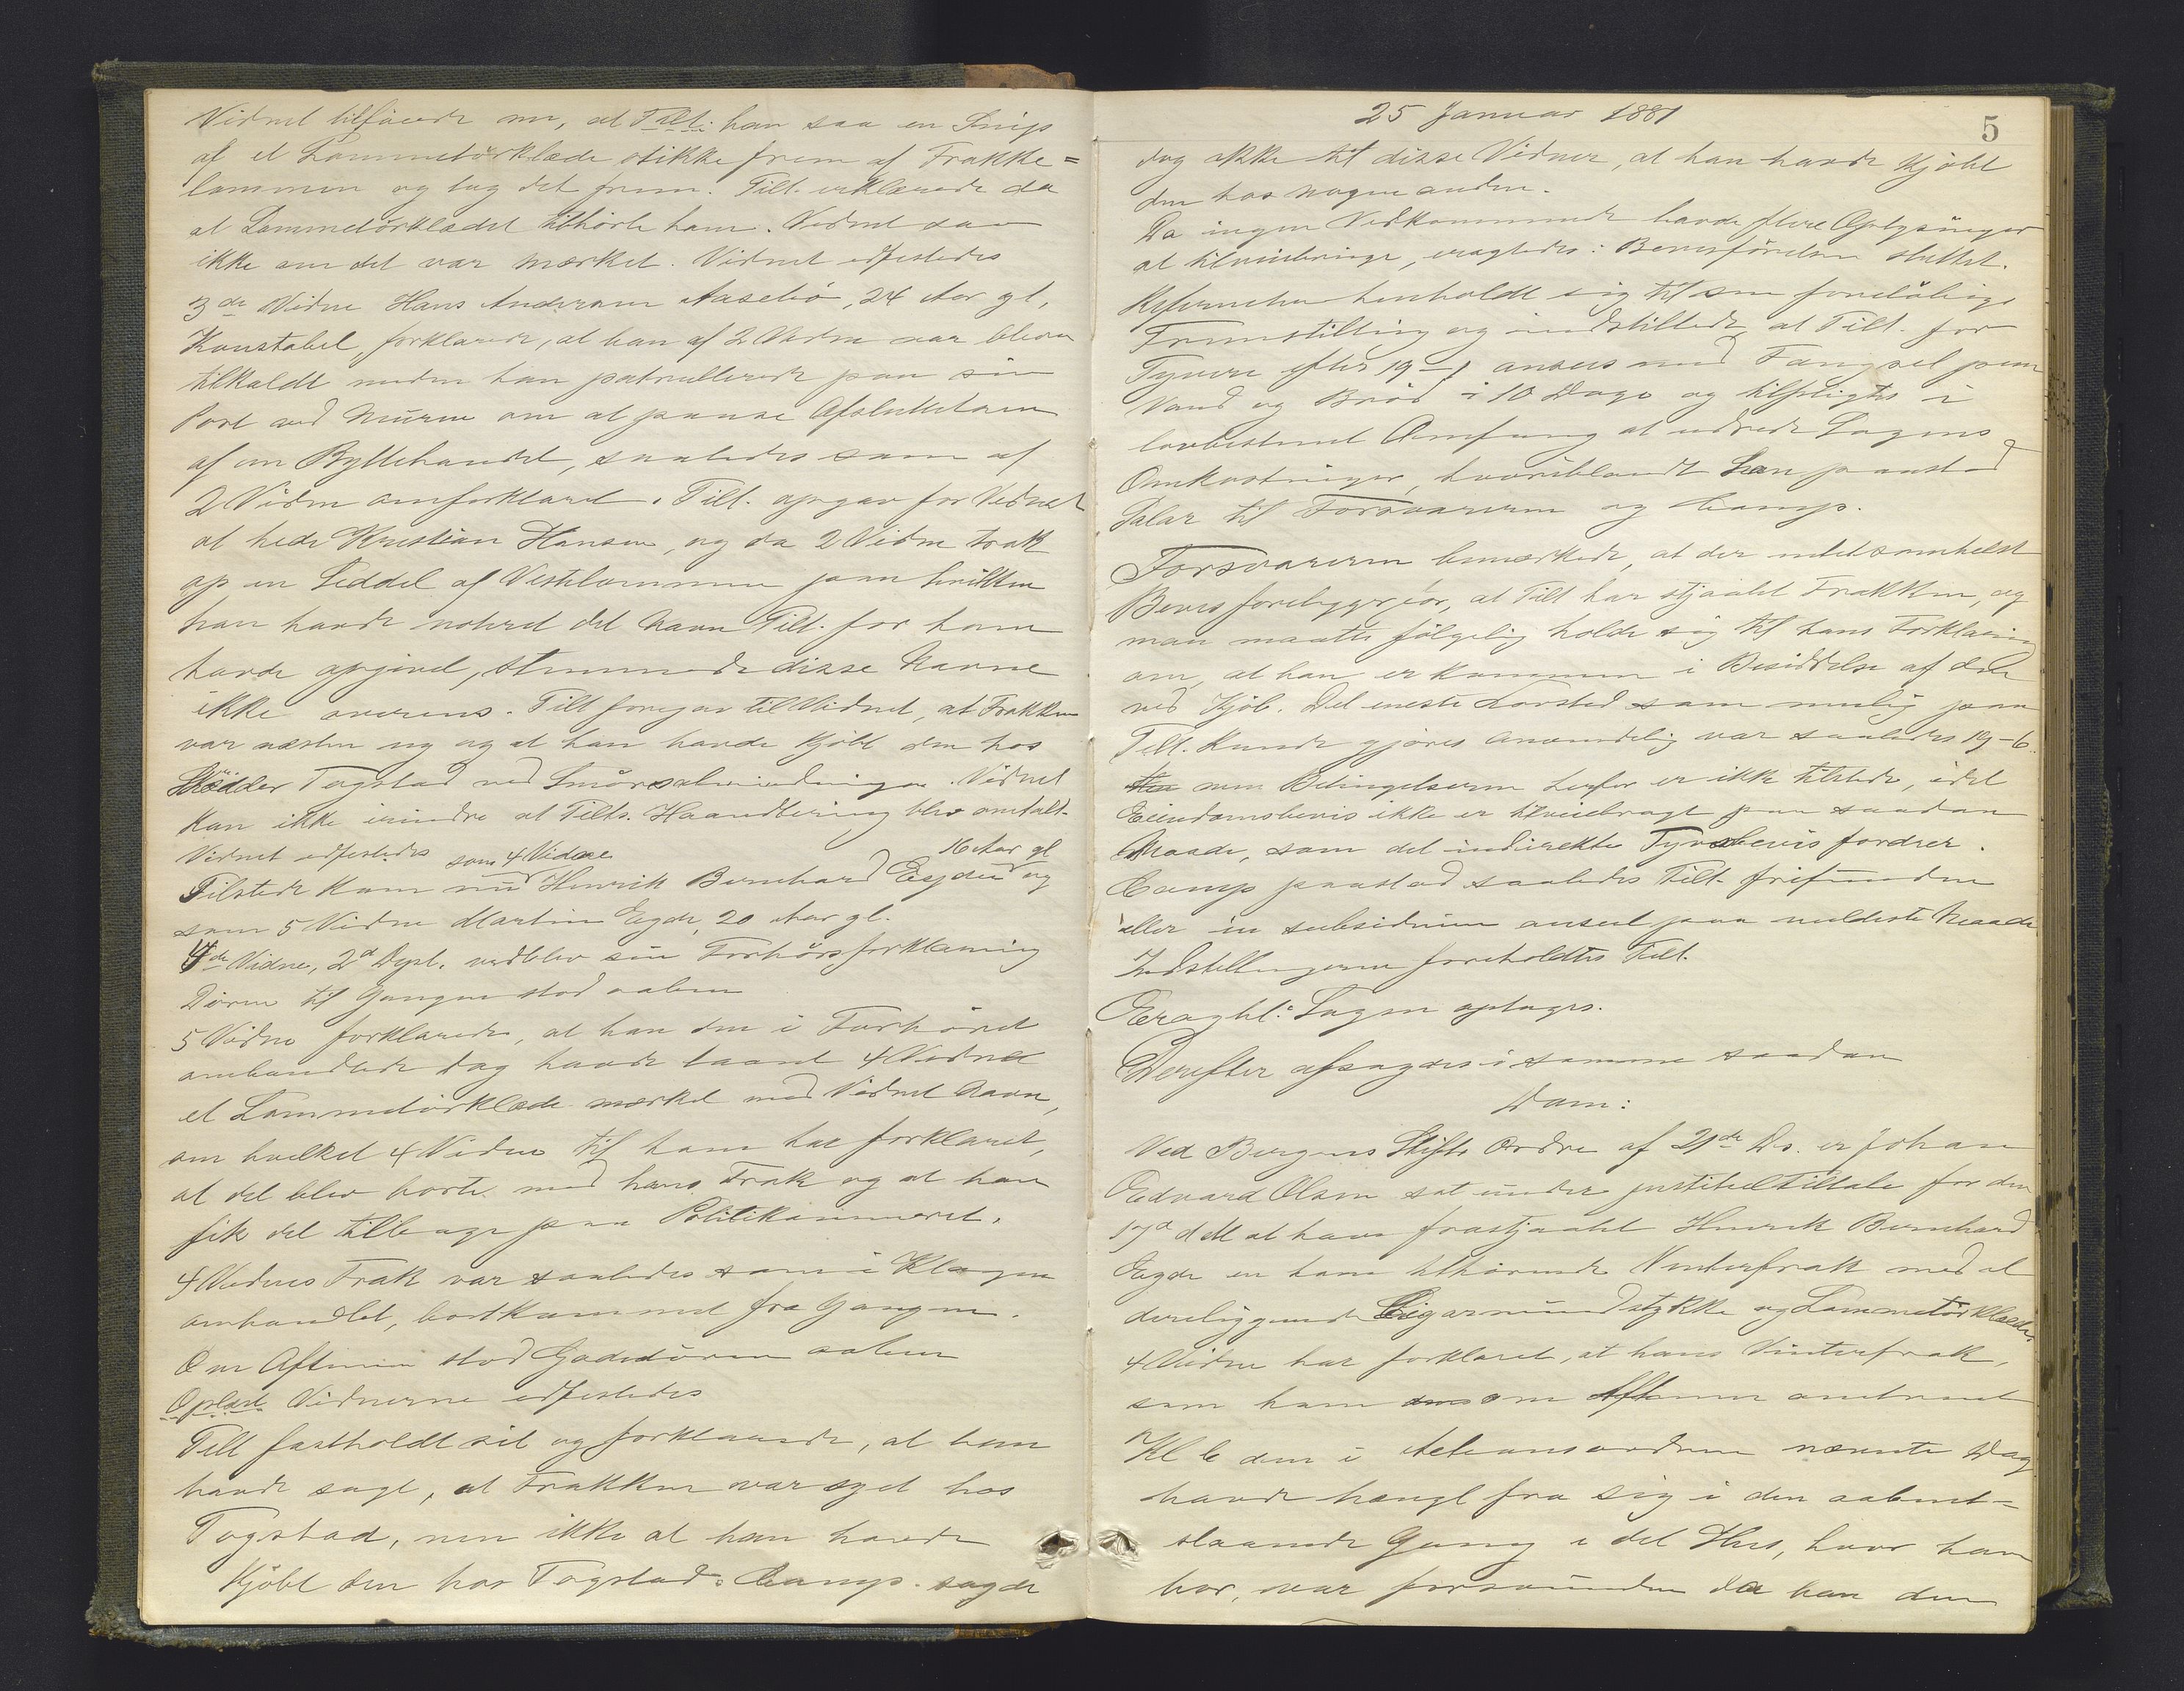 Vidnet tilføiede nu, at Tilt. han saa en Snip
af et Lommetörklæde stikke frem af Frakke=
lommen og tog det frem. Tilt. erklærede da
at Lommetörklædet tilhörte ham. Vidnet saa
ikke om det var mærket. Vidnet edfestedes
3de Vidne Hans Andersen Aasebö, 24 Aar gl,
Konstabel, forklarede, at han af 2 Vidne var bleven
tilkaldt medens han patrullerede paa sin
Post ved Muren om at passe Afslutteben
af en Byttehandel, saaledes som af
2 Vidne omforklaret. Tilt. opgav for Vidnet
at hede Kristian Hansen, og da 2 Vidne trak
op en Seddel af Vestelommen paa hvilken
han havde noteret det Navn Tilt. for ham
havde opgivet, stemmede disse Navne
ikke overens. Tilt foregav til Vidnet, at Frakken
var næsten ny og at han havde Kjöbt den hos
Skrædder Togstad ved Smörsalmindingen. Vidnet
kan ikke erindre at Tilts. Haandtering blev omtalt.
Vidnet edfestedes
som 4 Vidne 16 Aar gl
Tilstede kom nu Henrik Bernhard Eegde og
som 5 Vidne Martin Eegde, 20 Aar gl.
4de Vidne, 2d Dept. vedblev sin Forhörsforklaring
Dören til Gangen stod aaben
5 Vidne forklarede, at han den i Forhöret
ombandlede Dag havde laant 4 Vidnet
et Lommetörklæde mærket med Vidnet Navn,
om hvilket 4 Vidne til ham har forklaret,
at det blev borte med hans Frak og at han
fik det tilbage paa Politikammeret.
4 Vidnes Frak var saaledes som i Klagen
omhandlet, bortkommet fra Gangen.
Om Aftenen stod Gadedören aaben
Oplæst. Vidnerne edfestedes
Tilt fastholdt sit og forklarede, at han
havde sagt, at Frakken var syet hos
Togstad, men ikke at han havde
Kjöbt den hos Togstad. Comp. sagde
25 Januar 1881
5
dog ikke til disse Vidner, at han havde Kjöbt
den hos nogen anden.
Da ingen Vedkommende havde flere Oplysninger
at tilveiebringe, eragtedes: Bevisförelsen sluttet.
Referenten henholdt sig til sin forelöbige
Fremstilling og indstillede at Tilt. for
Tyveri efter 19-1 ansees med Fængsel paa
Vand og Bröd i 10 Dage og tilpligtes i
lovbestemt Omfang at udrede Sagens
Omkostninger, hvoriblandt han paastod
Salær til Forsvareren og Comp.
Forsvareren bemærkede, at der intetsomhelst
Bevis foreligger for, at Tilt har stjaalet Frakken, og
man maatte fölgelig holde sig til hans Forklaring
om, at han er kommen i Besiddelse af den
ved Kjöb. Det eneste Lovsted som mulig paa
Tilt. Kunde gjöres anvendelig var saaledes 19-6.
men Betingelserne herfor er ikke tilstede, idet
Eiendomsbevis ikke er tilveiebragt paa saadan
Maade, som det indirekte Tyvsbevis fordrer.
Comp paastod saaledes Tilt. frifunden
eller in subsidium anseet paa mildeste Maade
Indstillingerne foreholdtes Tilt.
Eragtet: Sagen optages.
Derefter afsagdes i samme saadan
Dom:
Ved Bergens Stifts Ordre af 21de Ds. er Johan
Edvard Olsen sat under justitiel Tiltale for den
17d d M at have frastjaalet Henrik Bernhard
Eegde en ham tilhörende Vinterfrak med et
deriliggende Cigarmundstykke og Lommetörklæde.
4 Vidne har forklaret, at hans Vinterfrak,
som han om Aftenen omtrent
Kl 6 den i Actionsordren nævnte Dag
havde hængt fra sig i den aabent=
staaende Gang i det Hus, hvor han
bor, var forsvunden da han den